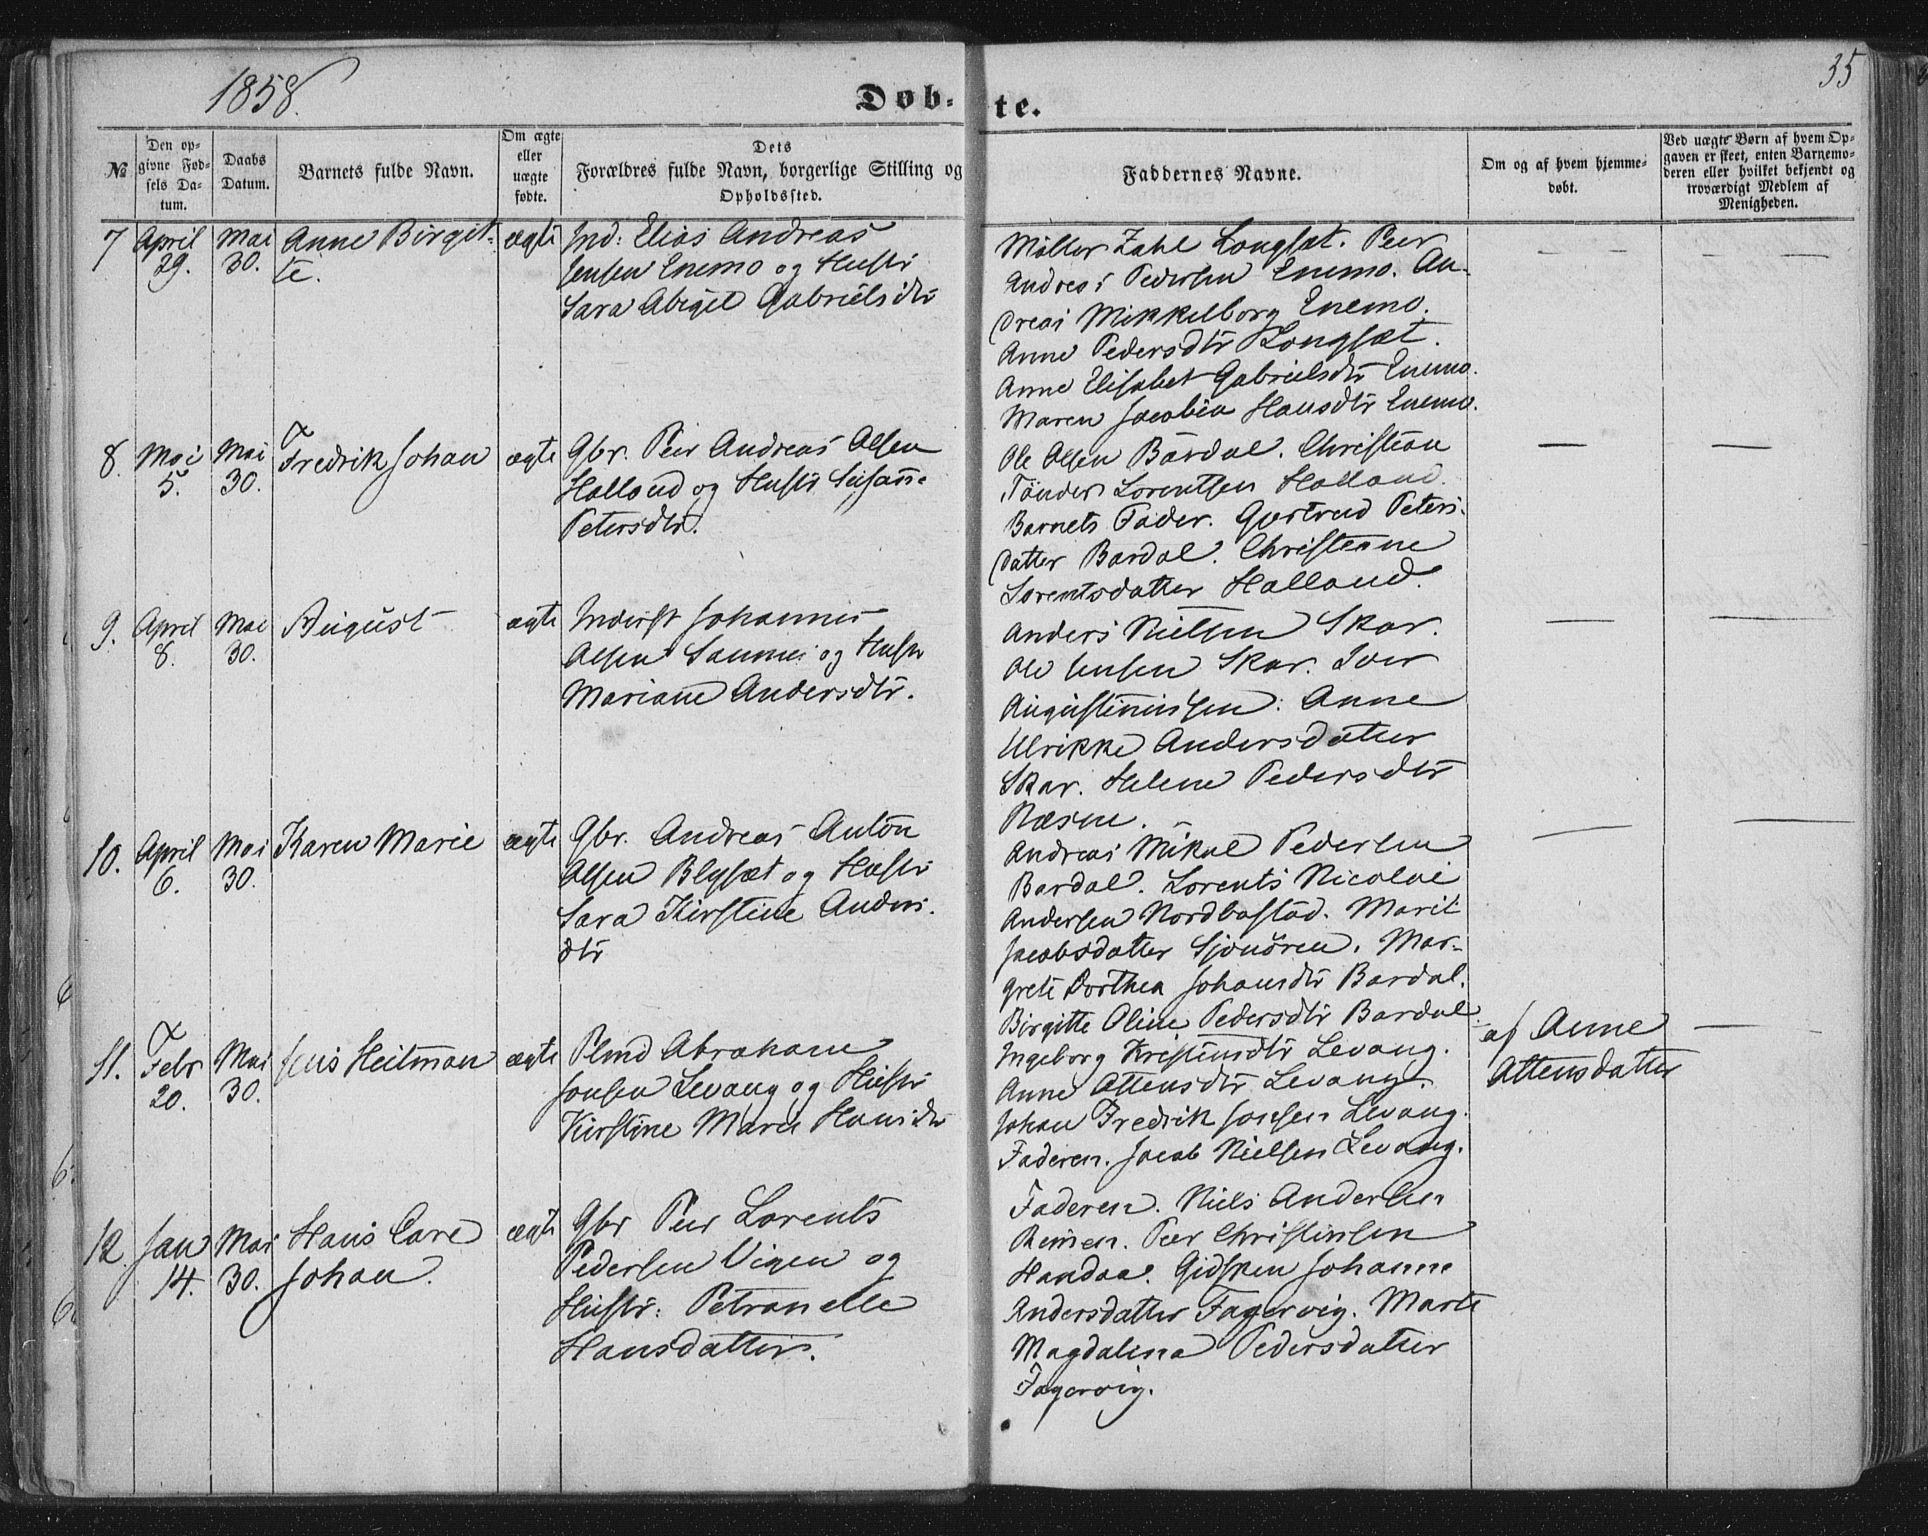 1858.
Døb-
te.
35
№
Den op-
givne Fød-
sels Da-
tum.
Daabs
Datum.
Barnets fulde Navn.
Om ægte
eller
uægte
fødte.
Dets
Forældres fulde Navn, borgerlige Stilling og
Opholdssted.
Faddernes Navne.
Om og af hvem hjemme-
døbt.
Ved uægte Børn af hvem Op-
gaven er skeet, enten Barnemo-
deren eller hvilket bekjendt og
troværdigt Medlem af
Menigheden.
7
April
29.
Mai
30.
Anne Birgit-
te.
ægte
Ind: Elias Andreas
Jensen Enemo og Hustr
Sara Abigel Gabrielsdtr
Møller Zahl Longsæt. Peer
Andreas Pedersen Enemo. An-
dreas Mikkelborg Enemo.
Anne Pedersdtr Longsæt.
Anne Elisabet Gabrielsdtr Enemo.
Maren Jacobia Hansdtr Enemo.
8.
Mai
5.
Mai
30.
Fredrik Johan
ægte
Gbr. Peer Andreas Olsen
Holland og Hustr Susanne
Petersdtr.
Ole Olsen Bardal. Christian
Tønder Lorentsen Holland.
Barnets Fader. Gjertrud Peters-
datter Bardal. Christianne
Lorentsdatter Holland.
9.
April
8.
Mai
30.
August
ægte
Inderst Johannes
Olsen Sannes og Hustr
Mariane Andersdtr.
Anders Nielsen Skar.
Ole Jensen Skar. Iver
Augustinussen. Anne
Ulrikke Andersdatter
Skar. Helene Pedersdtr
Næsne.
10.
April
6.
Mai
30.
Karen Marie
ægte
Gbr. Andreas Anton
Olsen Blysæt og Hustr
Sara Kirstine Anders-
dtr
Andreas Mikal Pedersen
Bardal. Lorents Nicolai
Andersen Nordbostad. Marit
Jacobsdatter Sjonøren. Mar-
grete Dorthea Johansdtr Bardal.
Birgitte Oline Pedersdtr Bardal.
11.
Febr
20.
Mai
30.
Jens Heitman
ægte
Plmd Abraham
Jonsen Levang og Hustr
Kirstine Maria Hansdtr
Ingeborg Kristensdtr Levang.
Anne Attensdtr Levang.
Johan Fredrik Jonsen Levang.
Faderen. Jacob Nielsen Levang.
af Anne
Attensdatter
12.
Jan
14.
Mai
30.
Hans Care
Johan.
ægte
Gbr Peer Lorents
Pedersen Vigen og
Hustr: Petronelle
Hansdatter.
Faderen. Niels Andersen
Remen. Peer Christensen
Handaa. Gidsken Johanne
Andersdatter Fagervig. Marte
Magdalena Pedersdatter
Fagervig.